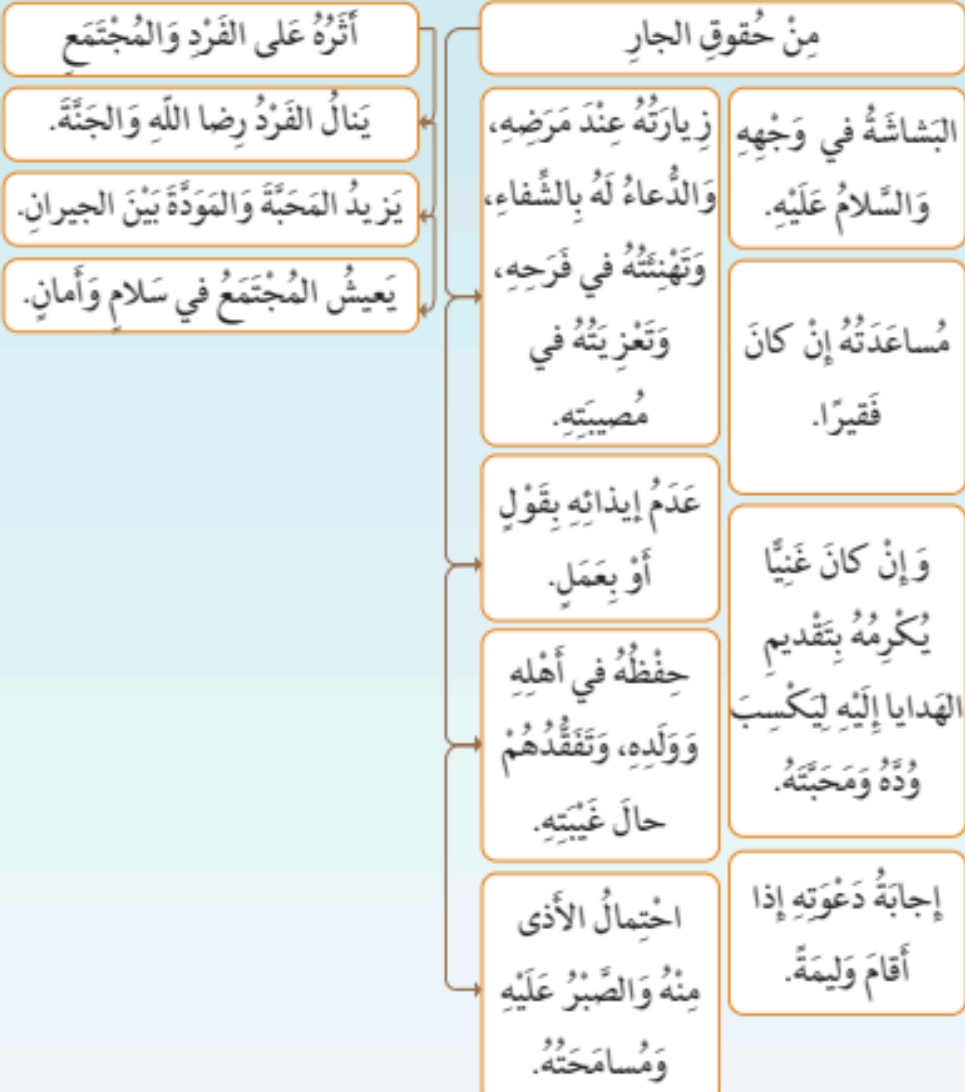 مِنْ حُقوقِ الجارِ
البَشاشَةُ في وَجْهِهِ
وَالسَّلامُ عَلَيْهِ.
مُساعَدَتُهُ إِنْ كانَ
فَقيرًا.
وَإِنْ كانَ غَنِيًّا
يُكْرِمُهُ بِتَقْديمِ
الهَدايا إِلَيْهِ لِيَكْسِبَ
وُدَّهُ وَمَحَبَّتَهُ.
إِجابَةُ دَعْوَتِهِ إِذا
أَقامَ وَليمَةً.
زِيارَتُهُ عِنْدَ مَرَضِهِ،
وَالدُّعاءُ لَهُ بِالشَّفاءِ،
وَتَهْنِئَتُهُ في فَرَحِهِ،
وَتَعْزِيَتُهُ في
مُصيبَتِهِ.
عَدَمُ إيذائِهِ بِقَوْلٍ
أَوْ بِعَمَلٍ.
حِفْظُهُ في أَهْلِهِ
وَوَلَدِهِ، وَتَفَقُّدُهُمْ
حالَ غَيْبَتِهِ.
احْتِمالُ الأَذى
مِنْهُ وَالصَّبْرُ عَلَيْهِ
وَمُسامَحَتُهُ.
أَثَرُهُ عَلى الفَرْدِ وَالمُجْتَمَعِ
يَنالُ الفَرْدُ رِضا اللّهِ وَالجَنَّةَ.
يَزيدُ المَحَبَّةَ وَالمَوَدَّةَ بَيْنَ الجيرانِ.
يَعيشُ المُجْتَمَعُ في سَلامٍ وَأَمانٍ.